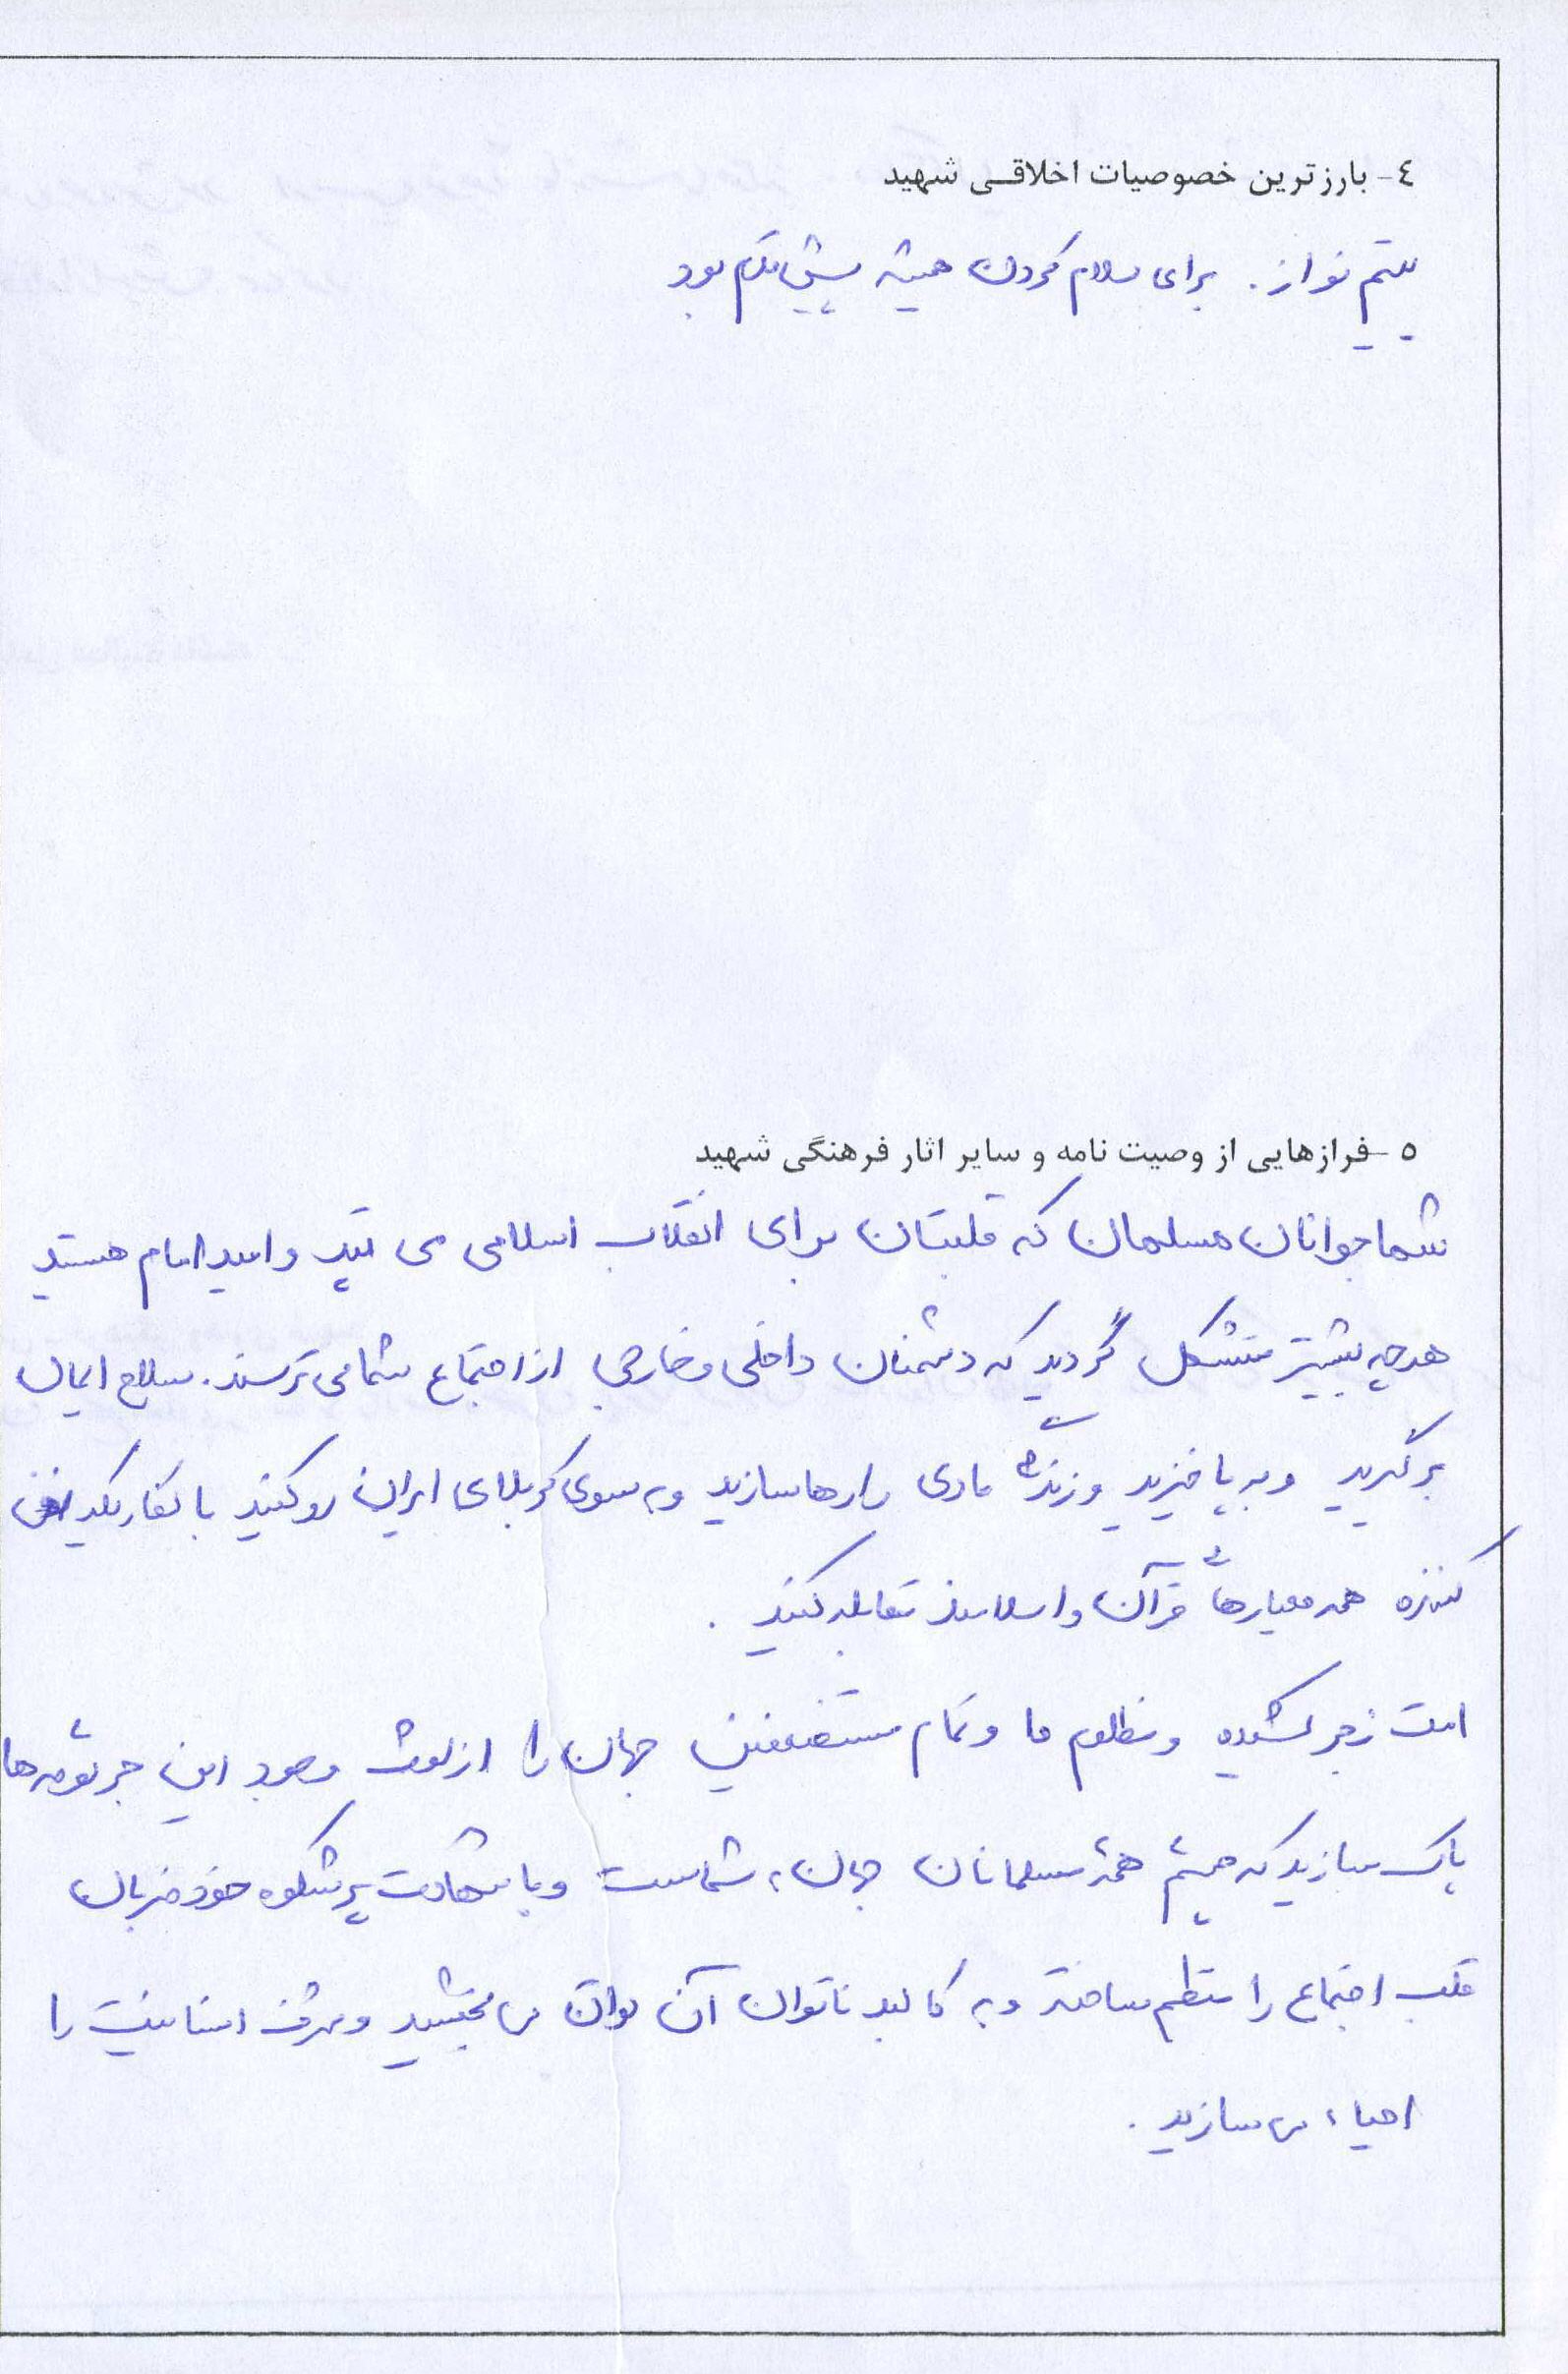 ٤- بارزترین خصوصیات اخلاقی شهید
یتیم نواز. برای سلام کردن همیشه پیش قدم بود
٥- فرازهایی از وصیت نامه و سایر اثار فرهنگی شهید
شما جوانان مسلمان که قلبتان برای انقلاب اسلامی می تپد و امید امام هستید
هرچه بیشتر متشکل گردید که دشمنان داخلی و خارجی از اجتماع شما می ترسند. سلاح ایمان
برگیرید و به پا خیزید و زندگی مادی را رها سازید و به سوی کربلای ایران رو کنید با کفار یکه نفی
کننده همه معیارهای قرآن و اسلامند مقابله کنید.
امت زجر کشیده و مظلوم ما و تمام مستضعفین جهان را از لوث وجود این جرثومه ها
پاک سازید که چشم همهٔ مسلمانان جهان به شماست و با شهادت پرشکوه خود ضربان
قلب اجتماع را منظم ساخته و به کالبد ناتوان آن توان می بخشید و شرف انسانیت را
احیاء می سازید.